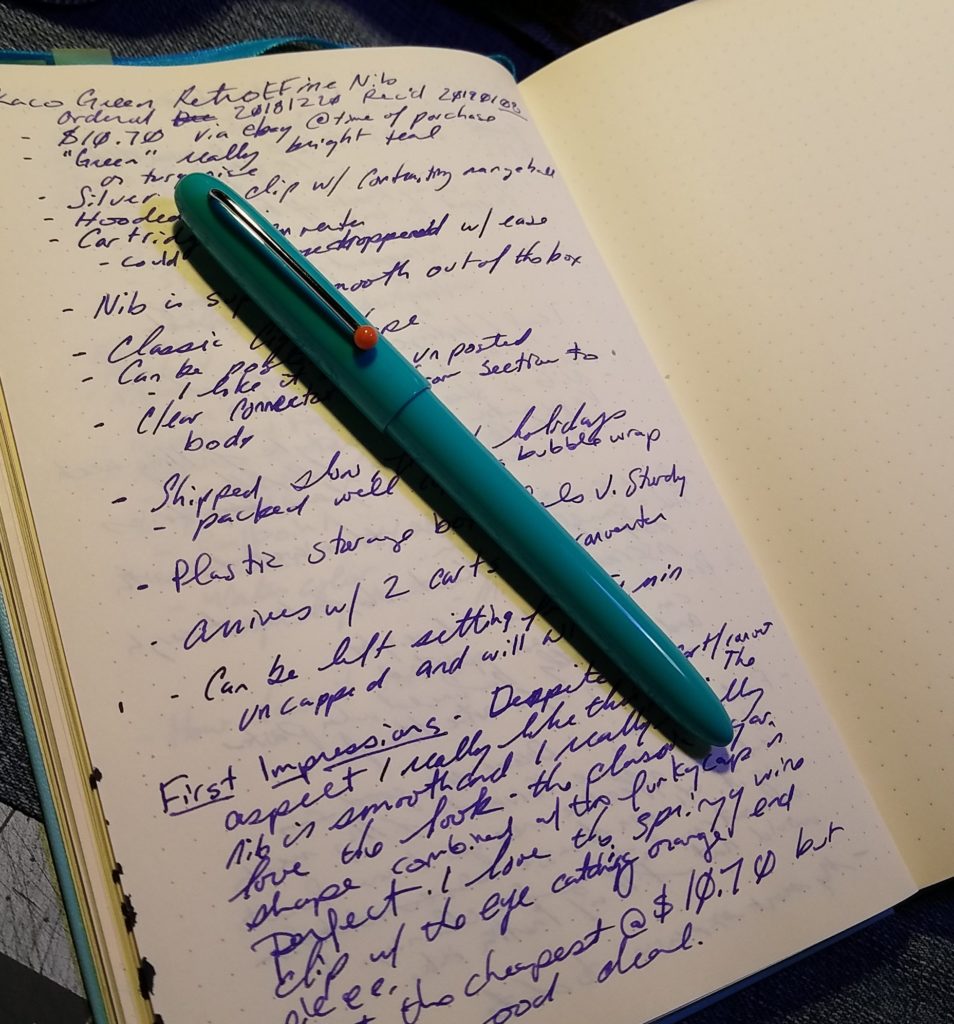 Kaco Green Retro EF Fine Nib
ordered Dec 20181220 Rec'd 201901
- $10.70 via ebay @ time of purchase
- "Green" really bright teal
or turquoise
- Silver clip w/ contrasting orange ball
- Hooded
- Cartrid
- could eyedroppered w/ ease
- Nib is smooth out of the box
- Classic
- Can be unposted
- I like it
- Clear connector from section to
body
- Shipped slow holidays
- packed well bubble wrap
- Plastic storage box v. sturdy
- arrives w/ 2 carts converter
- Can be left sitting min
uncapped and will
First Impressions - Despite
aspect I really like this. The
Nib is smooth and I really really
love the look. the
shape combined w/ the funky cap is
Perfect. I love the springy wire
clip w/ the eye catching orange end
the cheapest @ $10.70 but
good deal.